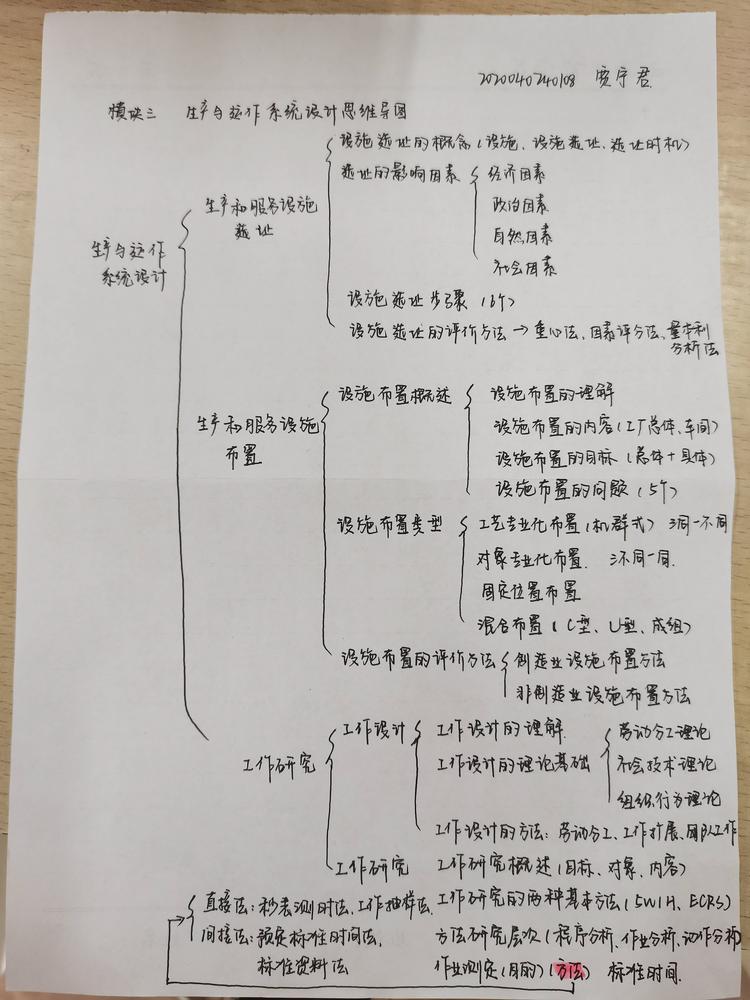 2020040240108 贾宇君
模块三 生产与运作系统设计思维导图
生产与运作
系统设计
生产和服务设施
选址
设施选址的概念(设施、设施选址、选址时机)
选址的影响因素
经济因素
政治因素
自然因素
社会因素
设施选址步骤(6个)
设施选址的评价方法→重心法、因素评分法、量本利
分析法
生产和服务设施
布置
设施布置概述
设施布置的理解
设施布置的内容(工厂总体、车间)
设施布置的目标(总体+具体)
设施布置的问题(5个)
设施布置类型
工艺专业化布置(机群式) 三同一不同
对象专业化布置. 三不同一同.
固定位置布置
混合布置(C型、U型、成组)
设施布置的评价方法
制造业设施布置方法
非制造业设施布置方法
工作研究
工作设计
工作设计的理解.
工作设计的理论基础
劳动分工理论
社会技术理论
组织行为理论
工作设计的方法:劳动分工、工作扩展、团队工作
工作研究
工作研究概述(目标、对象、内容)
工作研究的两种基本方法(5W1H、ECRS)
方法研究层次(程序分析、作业分析、动作分析)
作业测定(目的)(方法) 标准时间.
直接法:秒表测时法、工作抽样法.
间接法:预定标准时间法、
标准资料法